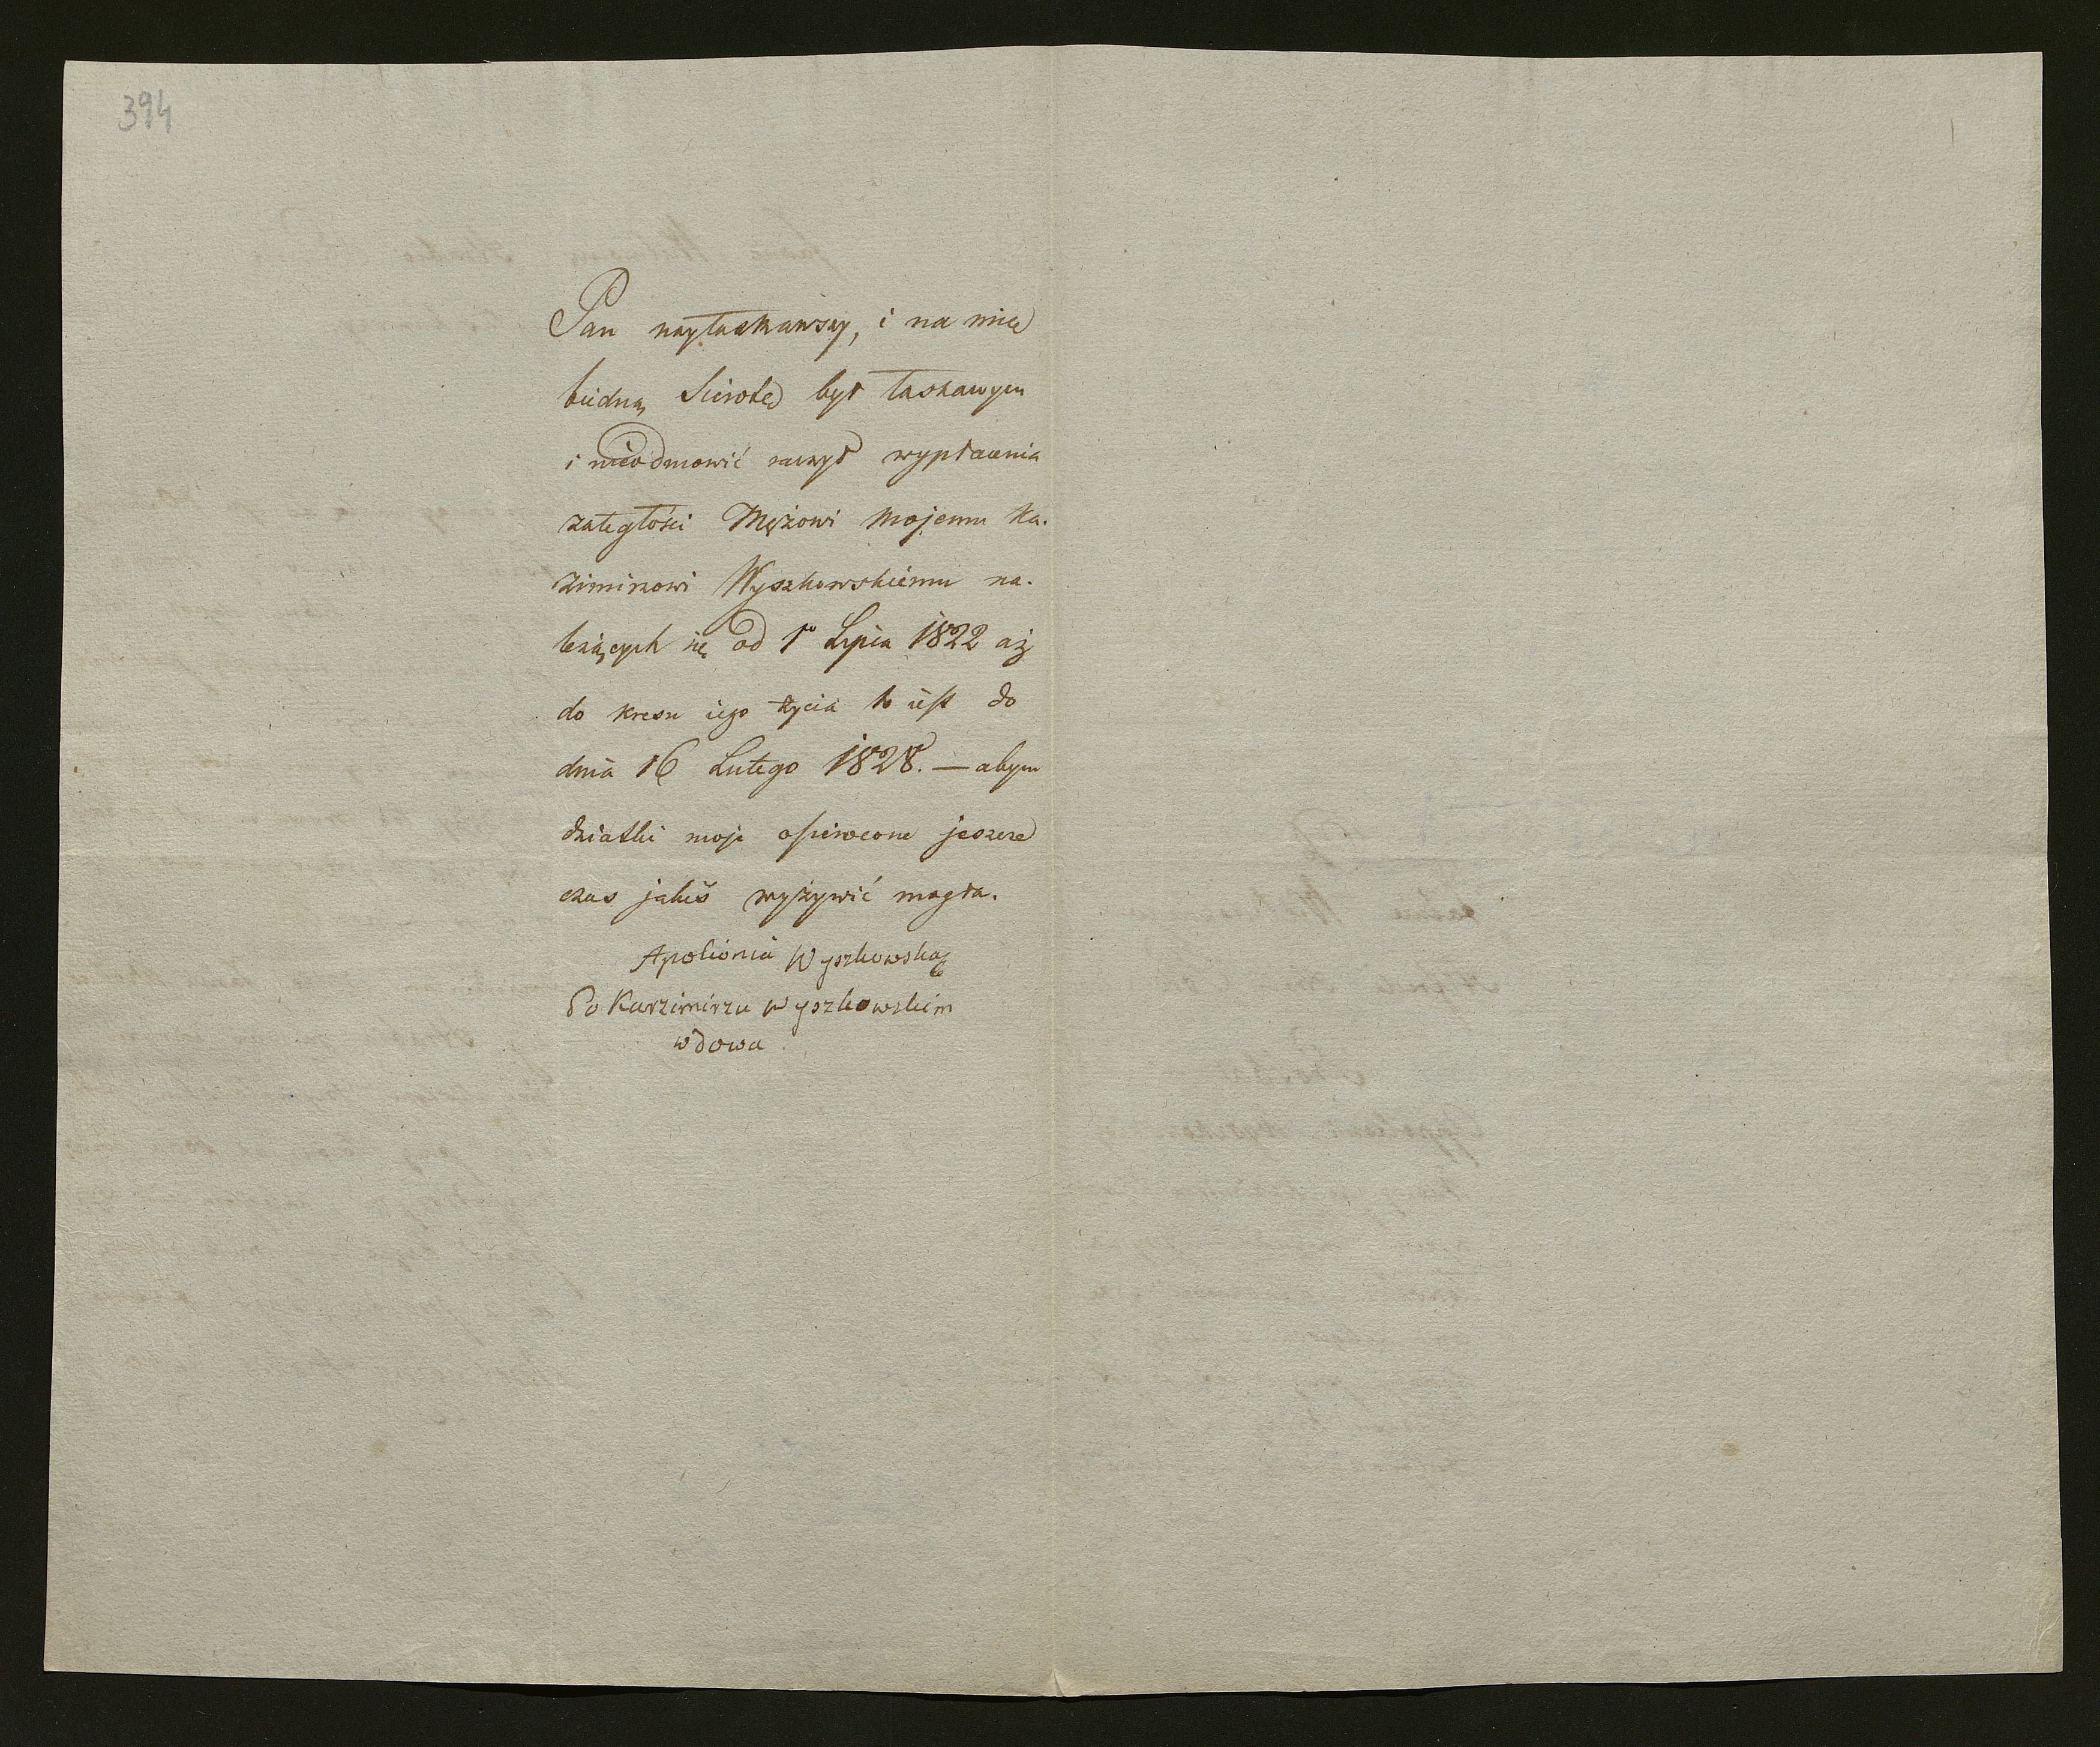 394
Pan nayłaskawszy, i na mię
biédną Sierotę był łaskawym
i nieodmowić raczył wypłacenia
zaległości Mężowi Mojemu Ka-
zimirzowi Wyszkowskiému na-
leżących się od 1go Lipca 1822 aż
do kresu iego życia to iest do
dnia 16 Lutego 1828. — abym
dziatki moje osierocone jeszcze
czas jakiś wyżywić mogła.
Apolionia Wyszkowska
Po Karzimirzu Wyszkowskim
wdowa